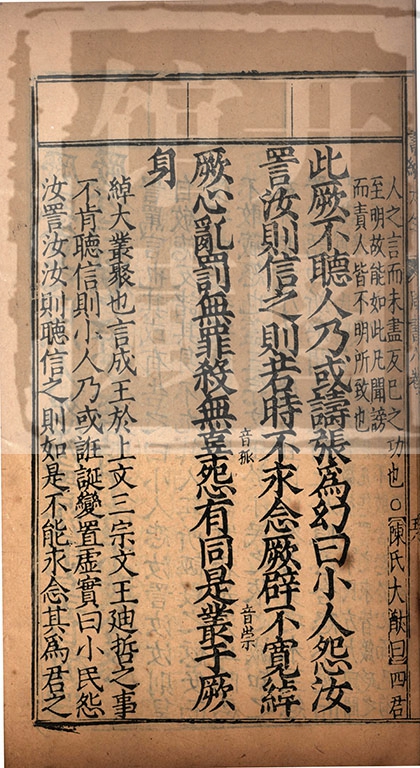 人之言而未盡反已之功也○【陳氏大猷曰】四君
至明故能如此凡聞謗
而責人皆不明所致也
此厥不聽人乃或譸張為幻曰小人怨汝
詈汝則信之則若時不永念厥辟不寛綽
厥心亂罰無罪殺無辜怨有同是叢于厥
身
綽大叢聚也言成王於上文三宗文王廸哲之事
不肯聽信則小人乃或誑誕變置虛實曰小民怨
汝詈汝汝則聽信之則如是不能永念其為君之